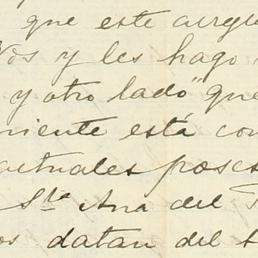 que este arregl
Nos y les hago
y otro lado" que
niente está con
actuales poses
Sta Ana del T
os datan del t